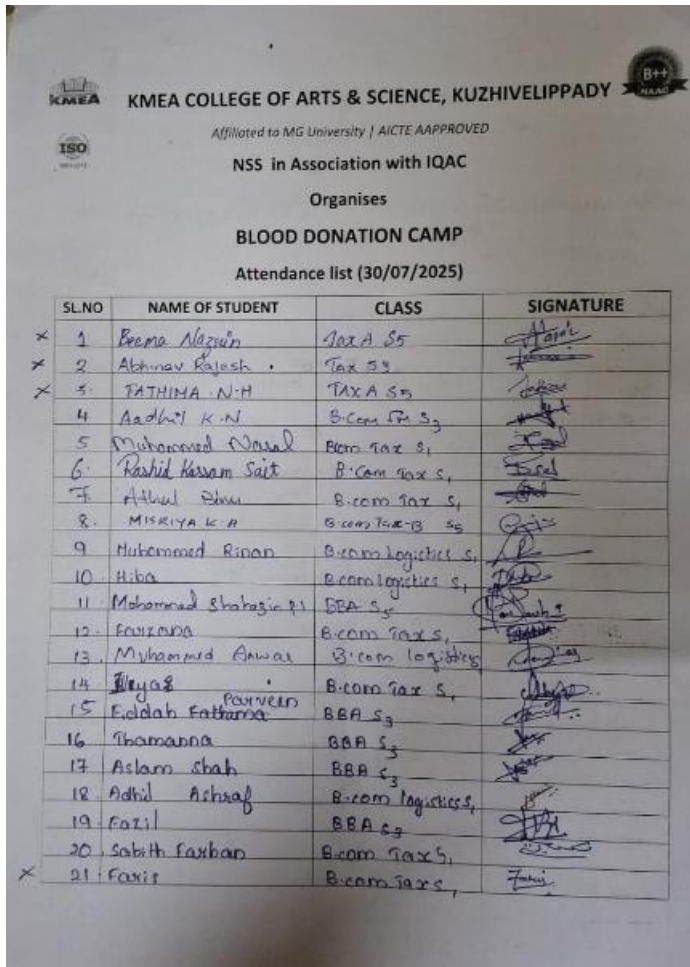 KMEA
B++
NAAC
KMEA COLLEGE OF ARTS & SCIENCE, KUZHIVELIPPADY
Affiliated to MG University | AICTE AAPPROVED
ISO
NSS in Association with IQAC
Organises
BLOOD DONATION CAMP
Attendance list (30/07/2025)
SL.NO NAME OF STUDENT CLASS SIGNATURE
x 1 Beema Tax A S5
x 2 Abhinav Rajesh . Tax S3
x 3. FATHIMA . N-H TAX A S5
4 Aadhil K.N B.Com S3
5 Muhammed B.com Tax S1
6. Rashid Kassam Sait B.Com Tax S1
7. Athul Binu B.com Tax S1
8. MISRIYA K A B.com Tax-B S5
9 Muhammed Rinan B.com Logistics S1
10 Hiba B.com logistics S1
11 Mohammed BBA S5
12. Farzana B.com Tax S1
13. Muhammed Anwar B.com logistics
14 B.com Tax S1
Parveen
15 Fiddah Fathima BBA S3
16 Thamanna BBA S3
17 Aslam Shah BBA S3
18. Adhil Ashraf B.com logistics S1
19. Fazil BBA S3
20 Sabith Farhan B.com Tax S1
x 21 Faris B.com Tax S1